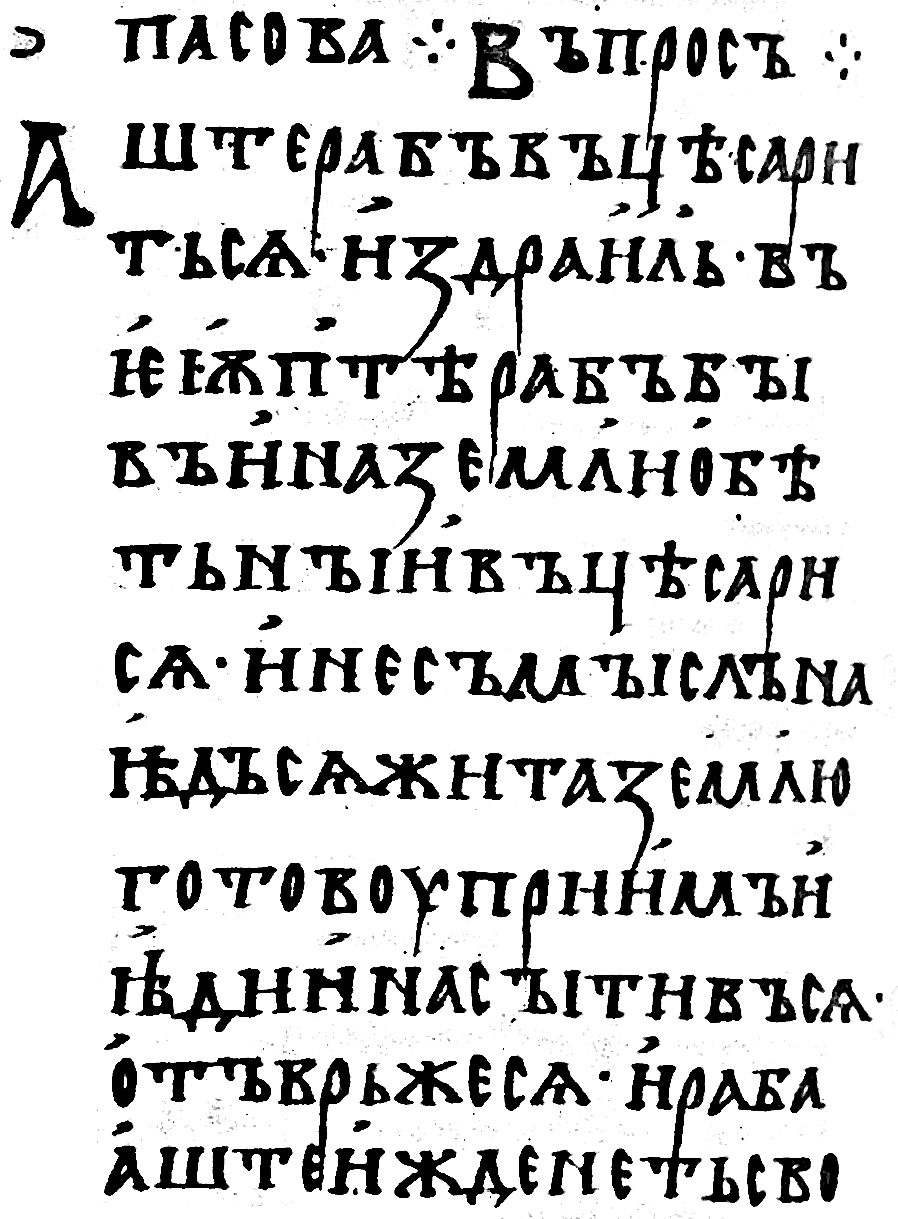 ͻ пасова ⁘ Въпросъ ⁘
Аштерабъвъцѣсари
тьсѧ · и҆здраи҆л҆ь · въ
ѥ҆ѭ҆п҆тѣрабъбъі
въи҆наземл҆ио҆бѣ
тьнъіи҆въцѣсари
сѧ · и҆несъмъіслъна
ꙓ҆дъсѧжитаземл҆ю
готовоуприи҆мъи҆
ꙓ҆дии҆насъітивъсѧ ·
о҆тъврьжесѧ · и҆раба
а҆штеи҆жденетьсво